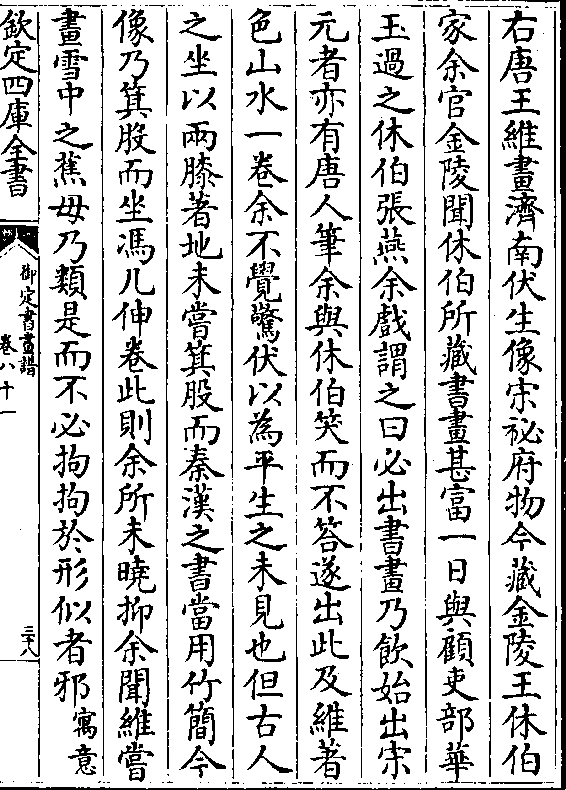 右唐王維畫濟南伏生像宋祕府物今藏金陵王休伯
家余官金陵聞休伯所藏書畫甚富一日與顧吏部華
玉過之休伯張燕余戲謂之曰必出書畫乃飲始出宋
元者亦有唐人筆余與休伯笑而不答遂出此及維著
色山水一卷余不覺驚伏以為平生之未見也但古人
之坐以兩膝著地未嘗箕股而秦漢之書當用竹簡今
像乃箕股而坐馮几伸卷此則余所未曉抑余聞維嘗
畫雪中之蕉毋乃類是而不必拘拘於形似者邪寓意
欽定四庫全書
御定書畫譜
卷八十一
三十八